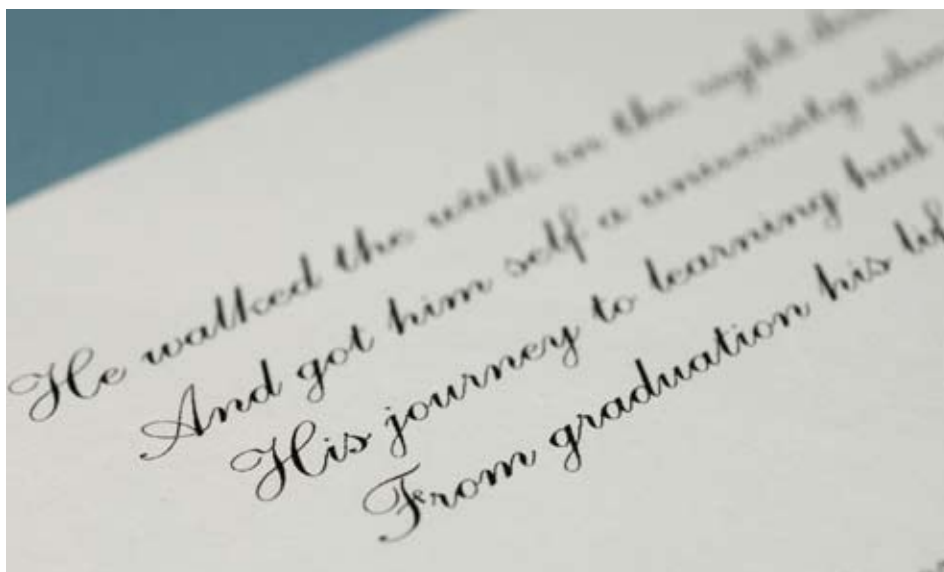 He walked the walk in the right
And got him self a university
His journey to learning had
From graduation his